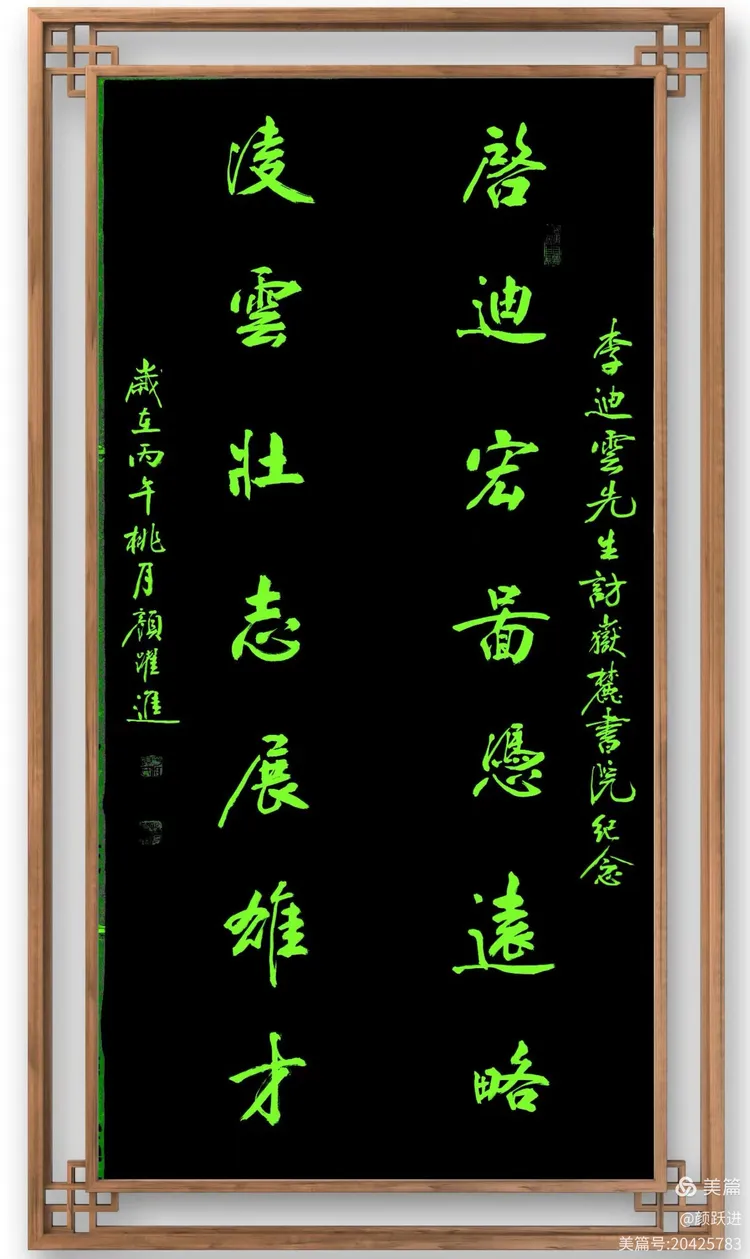 李迪雲先生訪嶽麓書院紀念
啓迪宏啚憑遠略
凌雲壯志展雄才
歲在丙午桃月顏躍進
美篇
@颜跃进
美篇号:20425783